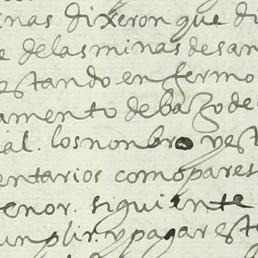 inas dixeron que di
e delas minas de san
estando enfermo
amento debaxo de
ial. los nonbro y est
entarios como pares
tenor. siguiente
cunplir. y pagar este